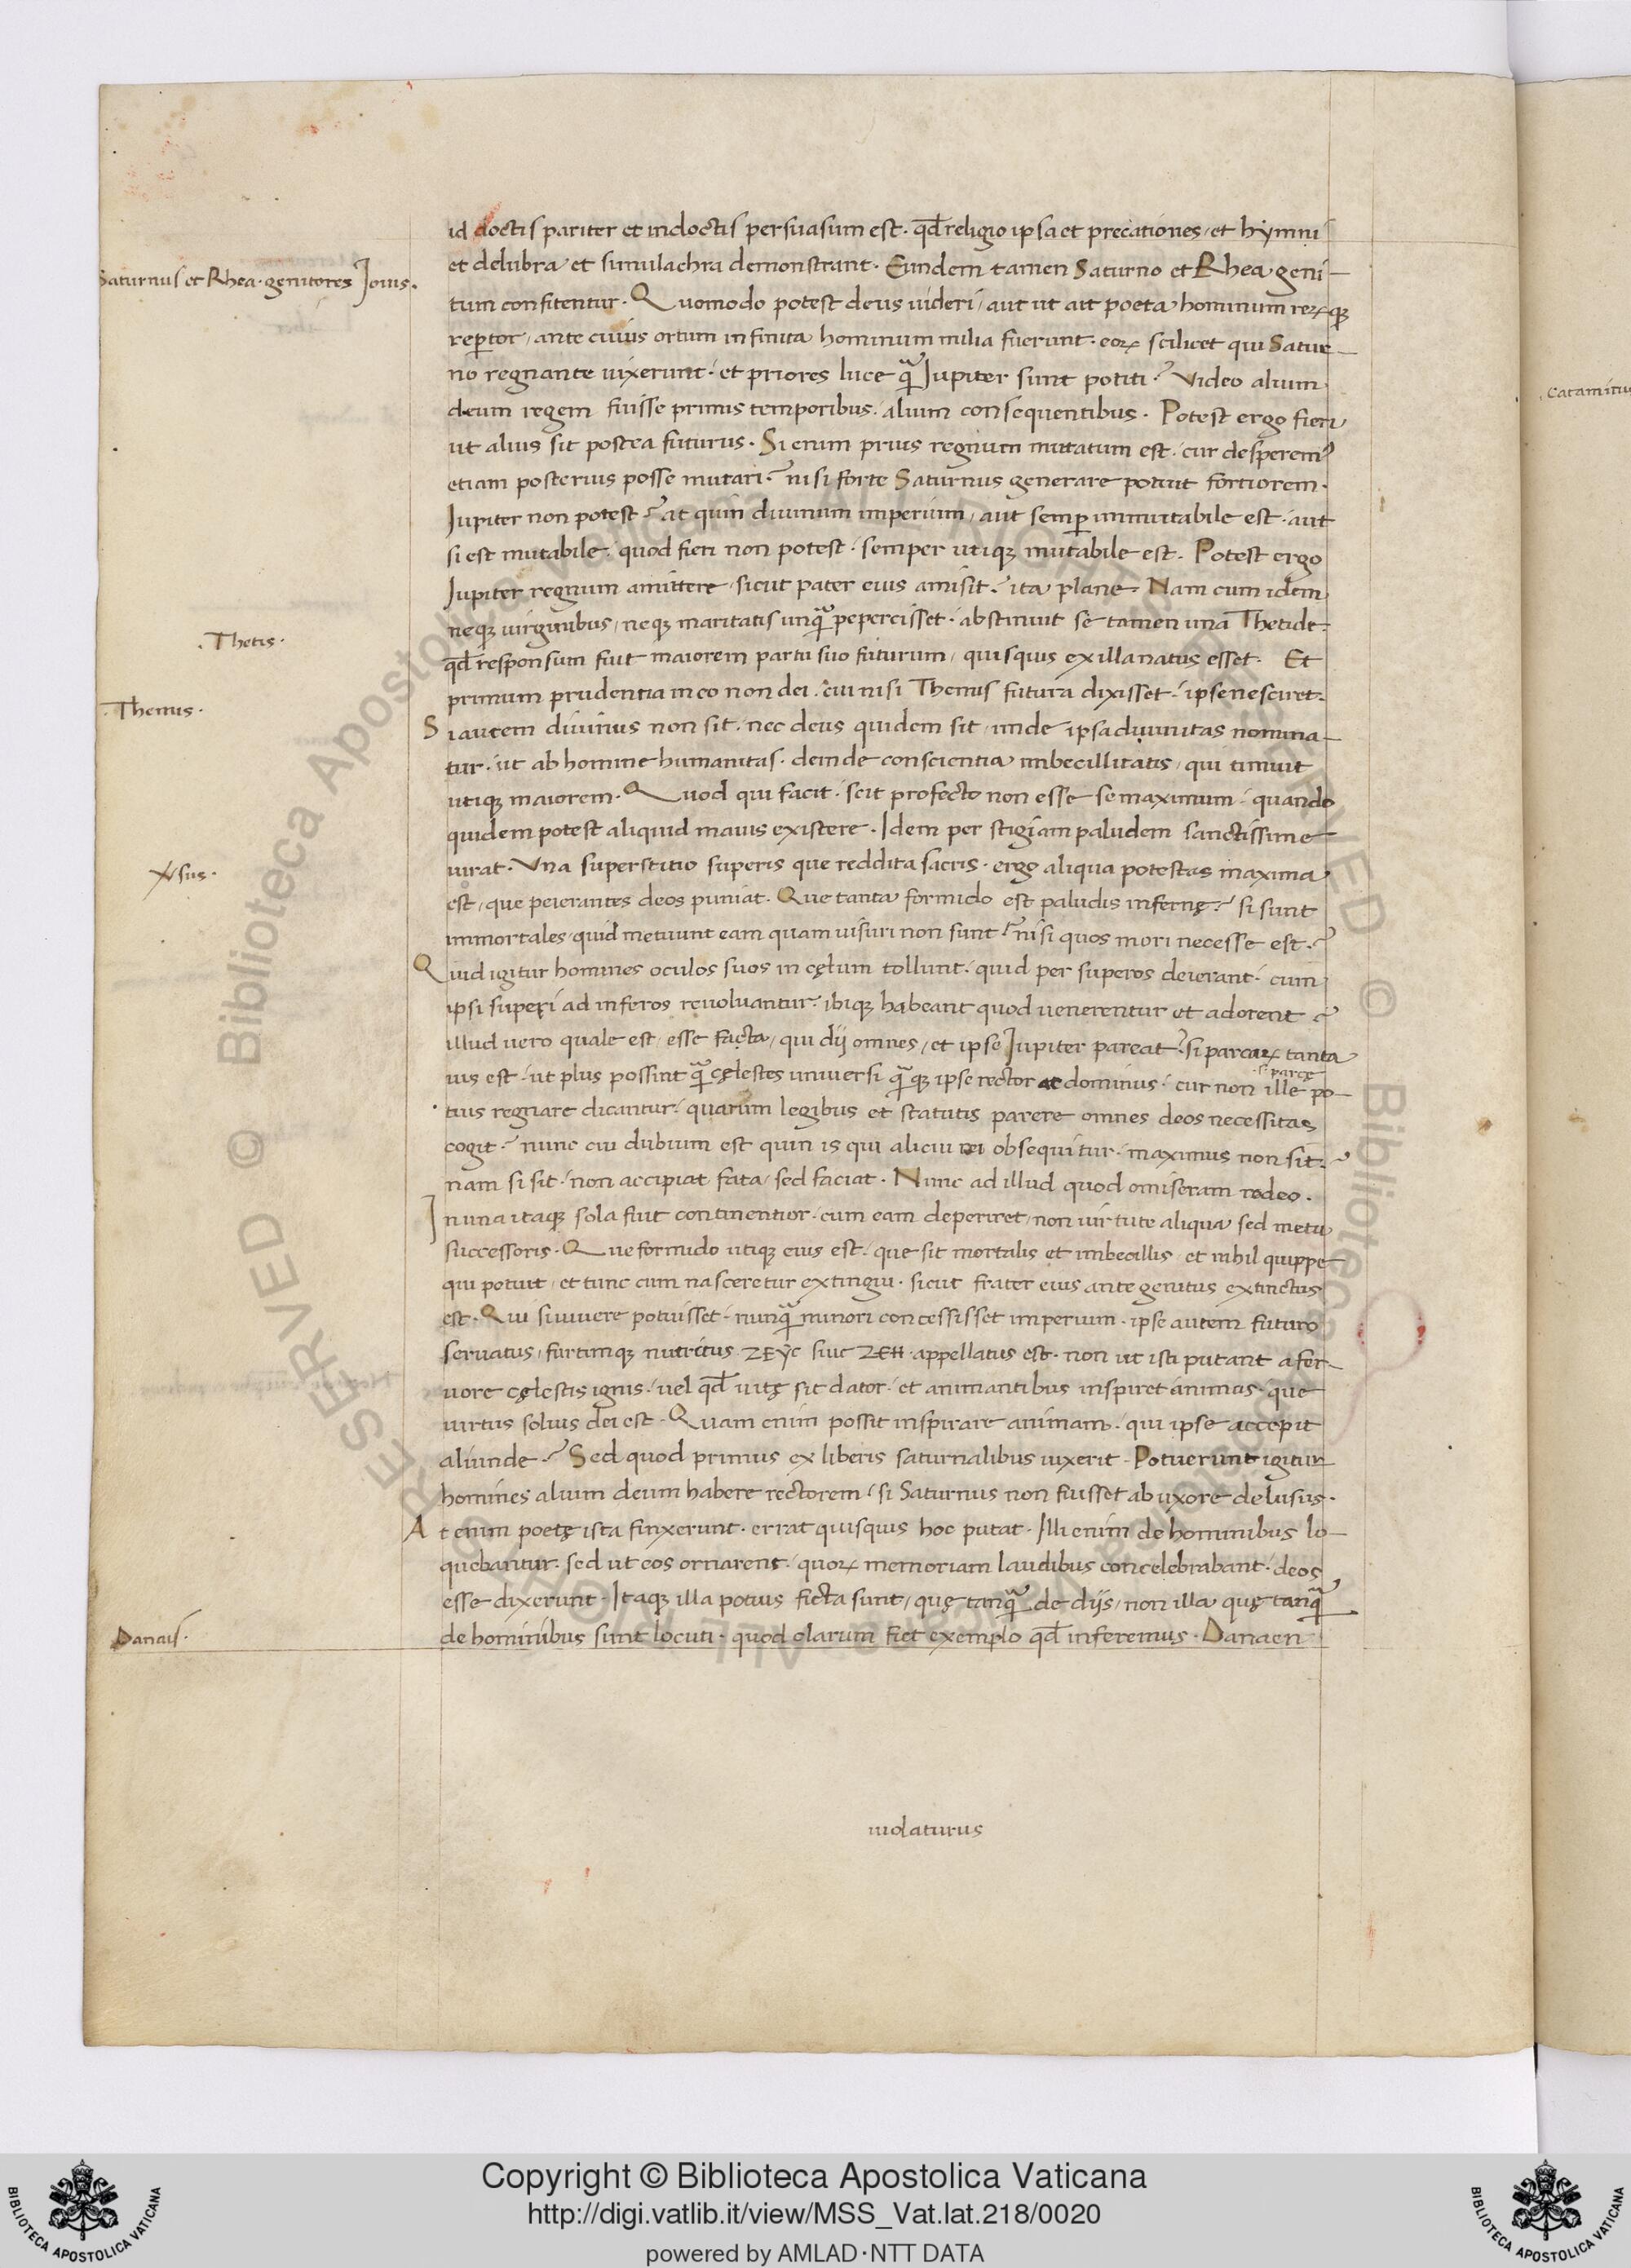 id doctis pariter et indoctis persuasum est. qđ religio ipsa et precationes, et hymni
et delubra et simulachra demonstrant. Eundem tamen Saturno et Rhea geni-
Saturnus et Rhea. genitores Iouis.
tum confitentur. Quomodo potest deus uideri, aut ut ait poeta hominum reꝝqꝫ
reꝑtor, ante cuius ortum infinita hominum milia fuerunt. eoꝝ scilicet qui Satur-
no regnante uixerunt. et priores luce qᷓ Iupiter sunt potiti? Video alium
deum regem fuisse primis temporibus. alium consequentibus. Potest ergo fieri
ut alius sit postea futurus. Si enim prius regnum mutatum est. cur desperem
etiam posterius posse mutari? nisi forte Saturnus generare potuit fortiorem.
Iupiter non potest? at quin diuinum imperium, aut semꝑ immutabile est. aut
si est mutabile. quod fieri non potest. semper utiqꝫ mutabile est. Potest ergo
Iupiter regnum amittere, sicut pater eius amisit? ita plane. Nam cum idem
neqꝫ uirginibus, neqꝫ maritatis unqᷓ pepercisset. abstinuit se tamen una Thetide.
Thetis.
qđ responsum fuit maiorem partu suo futurum, quisquis ex illa natus esset. Et
primum prudentia in eo non dei. cui nisi Themis futura dixisset. ipse nesciret.
Themis.
Si autem diuinus non sit. nec deus quidem sit. unde ipsa diuinitas nomina-
tur. ut ab homine humanitas. deinde conscientia imbecillitatis, qui timuit
utiqꝫ maiorem. Quod qui facit. scit profecto non esse se maximum. quando
quidem potest aliquid maius existere. Idem per stigiam paludem sanctissime
iurat. Vna superstitio superis que reddita sacris. ergo aliqua potestas maxima
est, que peierantes deos puniat. Que tanta formido est paludis infernę? si sunt
immortales, quid metuunt eam quam uisuri non sunt? nisi quos mori necesse est?
Quid igitur homines oculos suos in cęlum tollunt. quid per superos deierant. cum
ipsi superi ad inferos reuoluantur. ibiqꝫ habeant quod uenerentur et adorent?
illud uero quale est, esse facta, qui dij omnes, et ipse Iupiter pareat? si parcaꝝ tanta
si parcę
uis est. ut plus possint qᷓ cęlestes uniuersi qᷓqꝫ ipse rector ac dominus. cur non ille po-
tius regnare dicantur. quarum legibus et statutis parere omnes deos necessitas
cogit? nunc cui dubium est quin is qui alicui rei obsequitur. maximus non sit?
nam si sit. non accipiat fata, sed faciat. Nunc ad illud quod omiseram redeo.
In una itaqꝫ sola fuit continentior. cum eam deperiret, non uirtute aliqua sed metu
successoris. Que formido utiqꝫ eius est. que sit mortalis et imbecillis, et nihil quippe
qui potuit, et tunc cum nasceretur extingui. sicut frater eius ante genitus extinctus
est. Qui si uiuere potuisset. nunqᷓ minori concessisset imperium. ipse autem futuro
seruatus, furtimqꝫ nutritus. ΖΕΥϹ siue ΖΕΗ. appellatus est. non ut isti putant a fer-
uore cęlestis ignis. uel qđ uitę sit dator. et animantibus inspiret animas. que
uirtus solius dei est. Quam enim possit inspirare animam. qui ipse accepit
aliunde? Sed quod primus ex liberis saturnalibus uixerit. Potuerunt igitur
homines alium deum habere rectorem, si Saturnus non fuisset ab uxore delusus.
At enim poetę ista finxerunt. errat quisquis hoc putat. Illi enim de hominibus lo-
quebantur. sed ut eos ornarent. quoꝝ memoriam laudibus concelebrabant. deos
esse dixerunt. Itaqꝫ illa potius ficta sunt, quę tanqᷓ de dijs, non illa quę tanqᷓ
de hominibus sunt locuti. quod clarum fiet exemplo qđ inferemus. Danaen
Danais.
uiolaturus
Copyright © Biblioteca Apostolica Vaticana
http://digi.vatlib.it/view/MSS_Vat.lat.218/0020
powered by AMLAD·NTT DATA
BIBLIOTECA APOSTOLICA VATICANA
BIBLIOTECA APOSTOLICA VATICANA